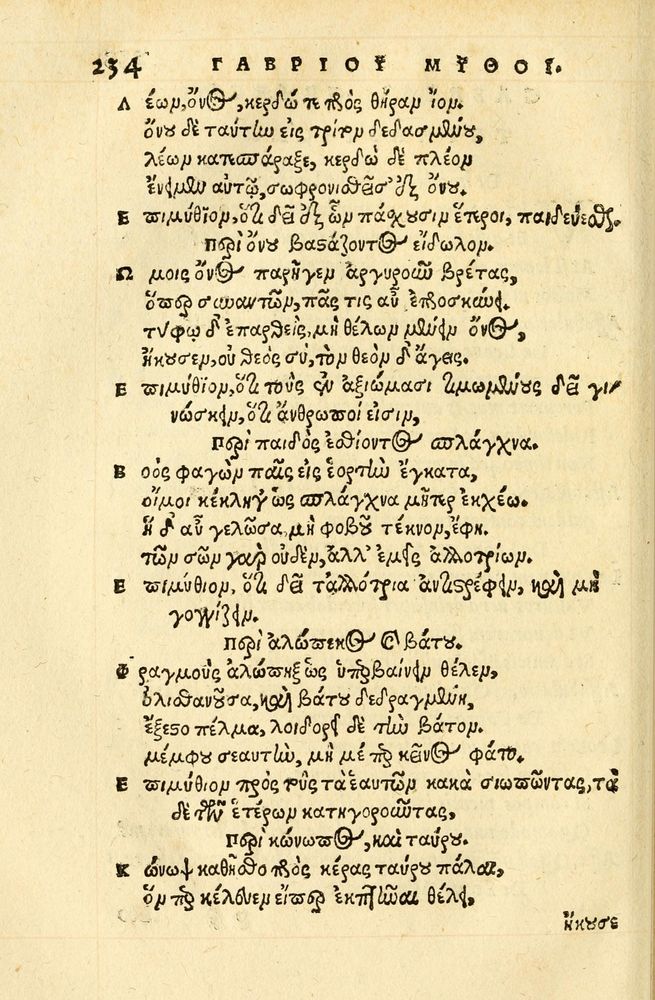 234 ΓΑΒΡΙΟΥ ΜΥΘΟΙ.
Λέων, ὄνος, κερδώ τε πρὸς θήραν ἴον.
ὄνου δὲ ταύτην εἰς τρίτον δεδασμένου,
λέων κατεσπάραξε, κερδὼ δὲ πλέον
ἔνειμεν αὐτῷ, σωφρονισθεῖσ' ἐξ ὄνου.
Ἐπιμύθιον, ὅτι δεῖ ἐξ ὧν πάσχουσιν ἕτεροι, παιδεύεσθαι.
Περὶ ὄνου βαστάζοντος εἴδωλον.
Ὤμοις ὄνος παρῆγεν ἀργυροῦν βρέτας,
ὅπερ συναντῶν, πᾶς τις αὖ
τύφῳ δ' ἐπαρθεὶς, μὴ θέλων μένειν ὄνος,
ἤκουσεν, οὐ θεὸς σὺ, τὸν θεὸν δ' ἄγεις.
Ἐπιμύθιον, ὅτι τοὺς ἐν ἀξιώμασι τιμωμένους δεῖ γι/
νώσκειν, ὅτι ἄνθρωποί εἰσιν,
Περὶ παιδὸς ἐσθίοντος σπλάγχνα.
Βοὸς φαγὼν παῖς εἰς ἑορτὴν ἔγκατα,
οἴμοι κέκληγ' ὡς σπλάγχνα μῆτερ ἐκχέω.
ἡ δ' αὖ γελῶσα, μὴ φοβοῦ τέκνον, ἔφη.
τῶν σῶν γὰρ οὐδὲν, ἀλλ' ἐμεῖς ἀλλοτρίων.
Ἐπιμύθιον, ὅτι δεῖ τἀλλότρια ἀντιστρέφειν, καὶ μὴ
γογγίζειν.
Περὶ ἀλώπεκος καὶ βάτου.
Φραγμοὺς ἀλώπηξ ὡς ὑπερβαίνειν θέλεν,
ὀλισθανοῦσα, καὶ βάτου δεδραγμένη,
ἔξεσο πέλμα, λοιδορεῖ δὲ τὴν βάτον.
μέμφου σεαυτὴν, μή με πρὸς κεῖνος φάτο.
Ἐπιμύθιον πρὸς τοὺς τὰ ἑαυτῶν κακὰ σιωπῶντας, τὰ
δὲ τῶν ἑτέρων κατηγοροῦντας,
Περὶ κώνωπος, καὶ ταύρου.
Κώνωψ καθῆστο πρὸς κέρας ταύρου πάλαι,
ὃν πρὸς κέλευεν εἴπερ ἐκπτῆναι θέλει,
ἤκουσε